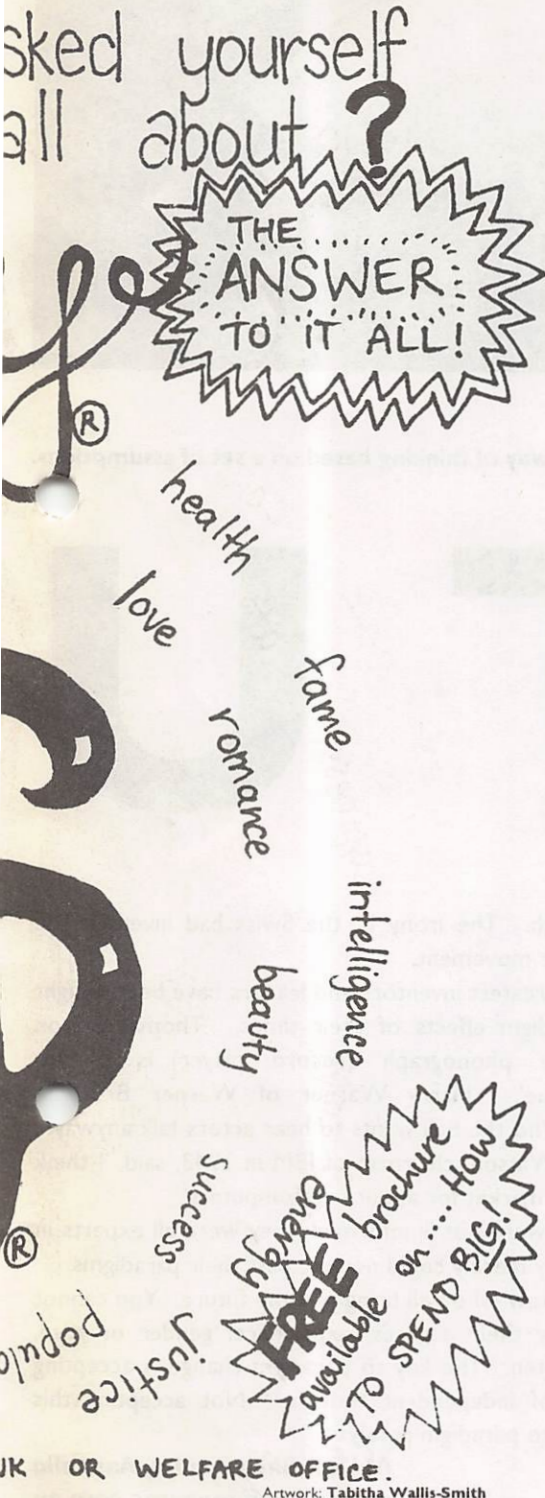 sked yourself
all about ?
THE
ANSWER
TO IT ALL!
®
health
love
fame
romance
intelligence
beauty
success
energy
FREE brochure
available on... HOW
TO SPEND BIG!
justice
popula
®
UK OR WELFARE OFFICE.
Artwork: Tabitha Wallis-Smith